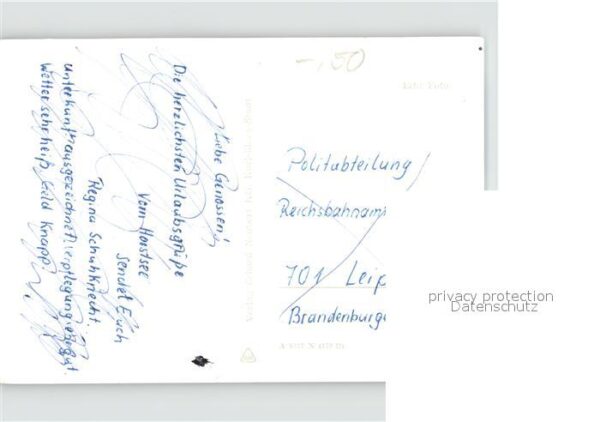 Liebe Genossen!
Die herzlichsten Urlaubsgrüße
Vom Horstsee
sendet Euch
Regina Schuhknecht.
Unterkunft ausgezeichnet, Verpflegung ebenso gut
Wetter sehr heiß, Geld Knapp!
-,50
Echt Foto
Politabteilung
Reichsbahnam
701 Leip
Brandenburge
privacy protection
Datenschutz